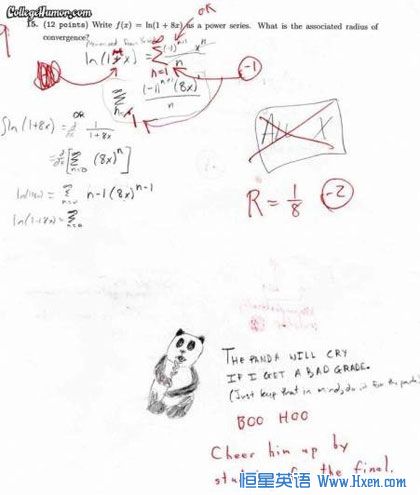 CollegeHumor.com
OK
15. (12 points) Write f(x) = ln(1 + 8x) as a power series. What is the associated radius of
convergence?
ln(1+x) = ∑ n=1 ∞ (-1)^(n+1) x^n / n
-1
∑ (-1)^(n+1) (8x)^n / n
1
All X
OR
∫ln(1+8x) = 1/(1+8x)
= [∑ n=0 ∞ (8x)^n]
R = 1/8
-2
= ∑ n-1 (8x)^(n-1)
ln(1+8x) = ∑ n=0 ∞
THE PANDA WILL CRY
IF I GET A BAD GRADE.
(Just keep that in mind, do it for the panda)
BOO HOO
Cheer him up by
studying for the final.
恒星英语 Www.Hxen.com